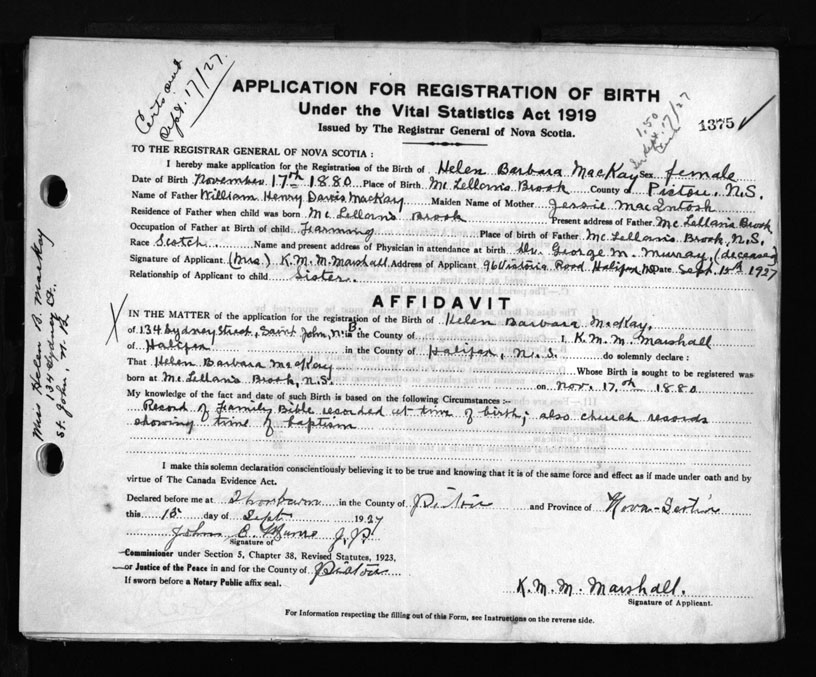 Certs and
Sept. 17/27.
APPLICATION FOR REGISTRATION OF BIRTH
Under the Vital Statistics Act 1919
Issued by The Registrar General of Nova Scotia.
1.50
Sept. 17/27
1375
TO THE REGISTRAR GENERAL OF NOVA SCOTIA :
I hereby make application for the Registration of the Birth of Helen Barbara MacKay Sex female
Date of Birth November 17th 1880 Place of Birth Mc Lellan's Brook County of Pictou, N.S.
Name of Father William Henry Davis MacKay Maiden Name of Mother Jessie MacIntosh
Residence of Father when child was born Mc Lellan's Brook Present address of Father Mc Lellan's Brook
Occupation of Father at Birth of child Farming Place of birth of Father Mc Lellan's Brook, N.S.
Race Scotch Name and present address of Physician in attendance at birth Dr. George M. Murray, (deceased)
Signature of Applicant (Mrs.) K. M. M. Marshall Address of Applicant 96 Victoria Road Halifax NS Date Sept. 15th 1927
Relationship of Applicant to child Sister.
AFFIDAVIT
IN THE MATTER of the application for the registration of the Birth of Helen Barbara MacKay,
of 134 Sydney Street, Saint John, N.B. in the County of I, K. M. M. Marshall
of Halifax in the County of Halifax, N. S. do solemnly declare :
That Helen Barbara MacKay Whose Birth is sought to be registered was
born at Mc Lellan's Brook, N.S. on Nov. 17th 1880
My knowledge of the fact and date of such Birth is based on the following Circumstances :-
Record of Family Bible recorded at time of birth; also church records
showing time of baptism
I make this solemn declaration conscientiously believing it to be true and knowing that it is of the same force and effect as if made under oath and by
virtue of The Canada Evidence Act.
Declared before me at Thorburn in the County of Pictou and Province of Nova-Scotia
this 15 day of Sept 1927
John E. Munro J.P.
Signature of
Commissioner under Section 5, Chapter 38, Revised Statutes, 1923,
or Justice of the Peace in and for the County of Pictou
If sworn before a Notary Public affix seal.
K. M. M. Marshall.
Signature of Applicant.
For Information respecting the filling out of this Form, see Instructions on the reverse side.
Miss Helen B. MacKay
134 Sydney St.
St. John, N. B.